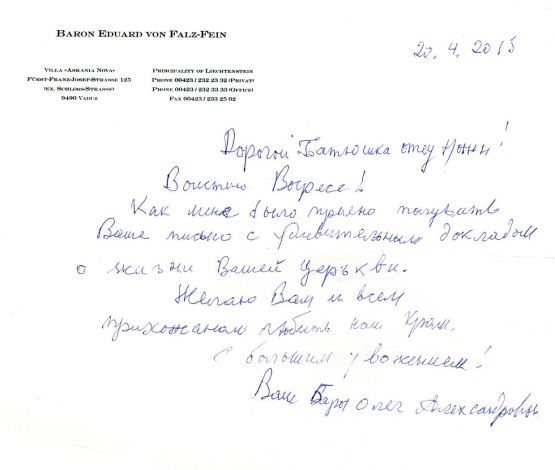 BARON EDUARD VON FALZ-FEIN
20. 4. 2015
VILLA «ASKANIA NOVA»
FÜRST-FRANZ-JOSEF-STRASSE 125
(EX. SCHLOSS-STRASSE)
9490 VADUZ
PRINCIPALITY OF LIECHTENSTEIN
PHONE 00423 / 232 23 32 (PRIVAT)
PHONE 00423 / 232 33 33 (OFFICE)
FAX 00423 / 233 25 02
Дорогой Батюшка отец Нонн!
Воистино Восресе!
Как мне было приятно получить
Ваше письмо с удивительным докладом
о жизни Вашей церькви.
Желаю Вам и всем
прихожанам любить наш Храм.
С большим уважением!
Ваш Барон Олег Александрович